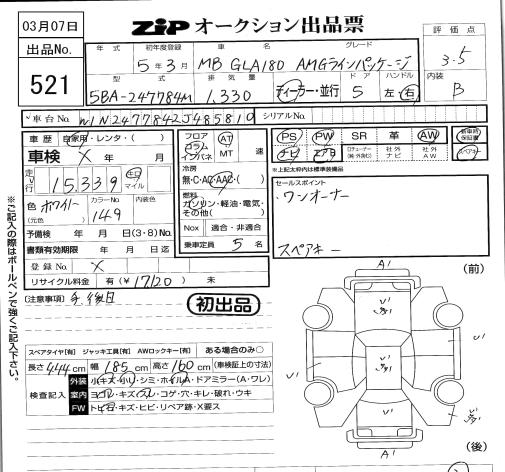 03月07日
ZIP オークション出品票
出品No.
521
年 式 初年度登録 車 名 グレード
5 年 3 月 MB GLA180 AMGラインパッケージ
型 式 排 気 量 ドア ハンドル
5BA-247784M 1.330 ディーラー・並行 5 左・右
評 価 点
3.5
内装
B
車台No. W1N2477842J485810 シリアルNo.
車 歴 自家用・レンタ・( )
車検 X 年 月
走行 15.339 キロ マイル
色 ホワイト (元色) カラーNo. 149 内装色
予備検 年 月 日(3・8)No.
書類有効期限 年 月 日迄
登 録 No. X
リサイクル料金 有(¥17120) 未
フロア コラム インパネ AT MT 速
冷房
無・C・AC・AAC・( )
燃料
ガソリン・軽油・電気・その他( )
Nox 適合・非適合
乗車定員 5 名
PS PW SR 革 AW 新車時保証書
ナビ エアB 社外ナビ 社外AW スペアキー
※上記太枠内は標準装備品
セールスポイント
ワンオーナー
スペアキー
(注意事項) 手後日
初出品
※ご記入の際はボールペンで強くご記入下さい。
スペアタイヤ[有] ジャッキ工具[有] AWロックキー[有] ある場合のみ○
長さ 444 cm 幅 185 cm 高さ 160 cm (車検証上の寸法)
検査記入
外装 小(キズ・凹)・シミ・ホイルA・ドアミラー(A・ワレ)
室内 ヨゴレ・キズ・スレ・コゲ・穴・キレ・破れ・ウキ
FW トビ石・キズ・ヒビ・リペア跡・X要ス
(前)
A1
U1
U1
U1
U1
A1
(後)